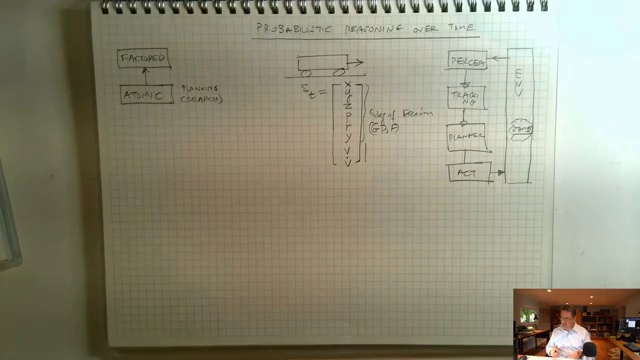 PROBABILISTIC REASONING OVER TIME
FACTORED
ATOMIC
PLANNING
(SEARCH)
St =
x
y
z
p
r
y
v
v̇
PERCEP
TRACKI
NG
PLANNER
ACT
ENV